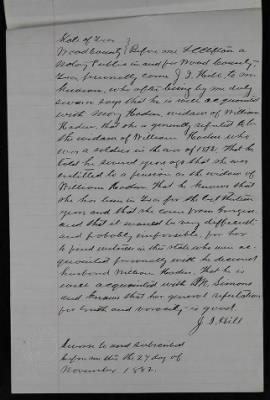 State of Texas }
Wood County } Before me a
Notary Public in and for Wood County
Texas personally came J. J. Hill, to me
known, who after being by me duly
sworn says that he is well acquainted
with Mary Harden, widow of William
Harden, that she is generally reputed to be
the widow of William Harden who
was a soldier in the war of 1812. That he
told her several years ago that she was
entitled to a pension as the widow of
William Harden. That he knows that
she has been in Texas for the last thirteen
years and that she came from Georgia
and that it would be very difficult
and probably impossible, for her
to find witnesses in this state who were ac-
quainted personally with her deceased
husband William Harden. That he is
well acquainted with Simons
and knows that her general reputation
for truth and veracity is good.
J. J. Hill
Sworn to and subscribed
before me this the 27 day of
November 1882.